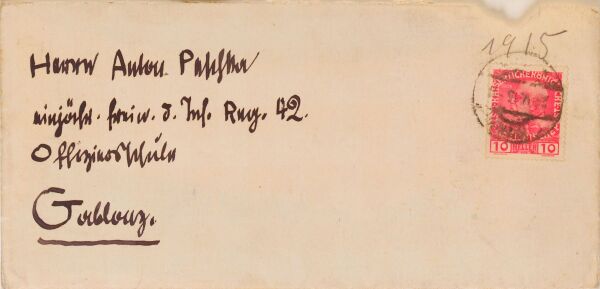 Herrn Anton Peschka
einjähr. freiw. d. Inf. Reg. 42.
Offiziersschule
Gablonz.
1915
10 HELLER 10